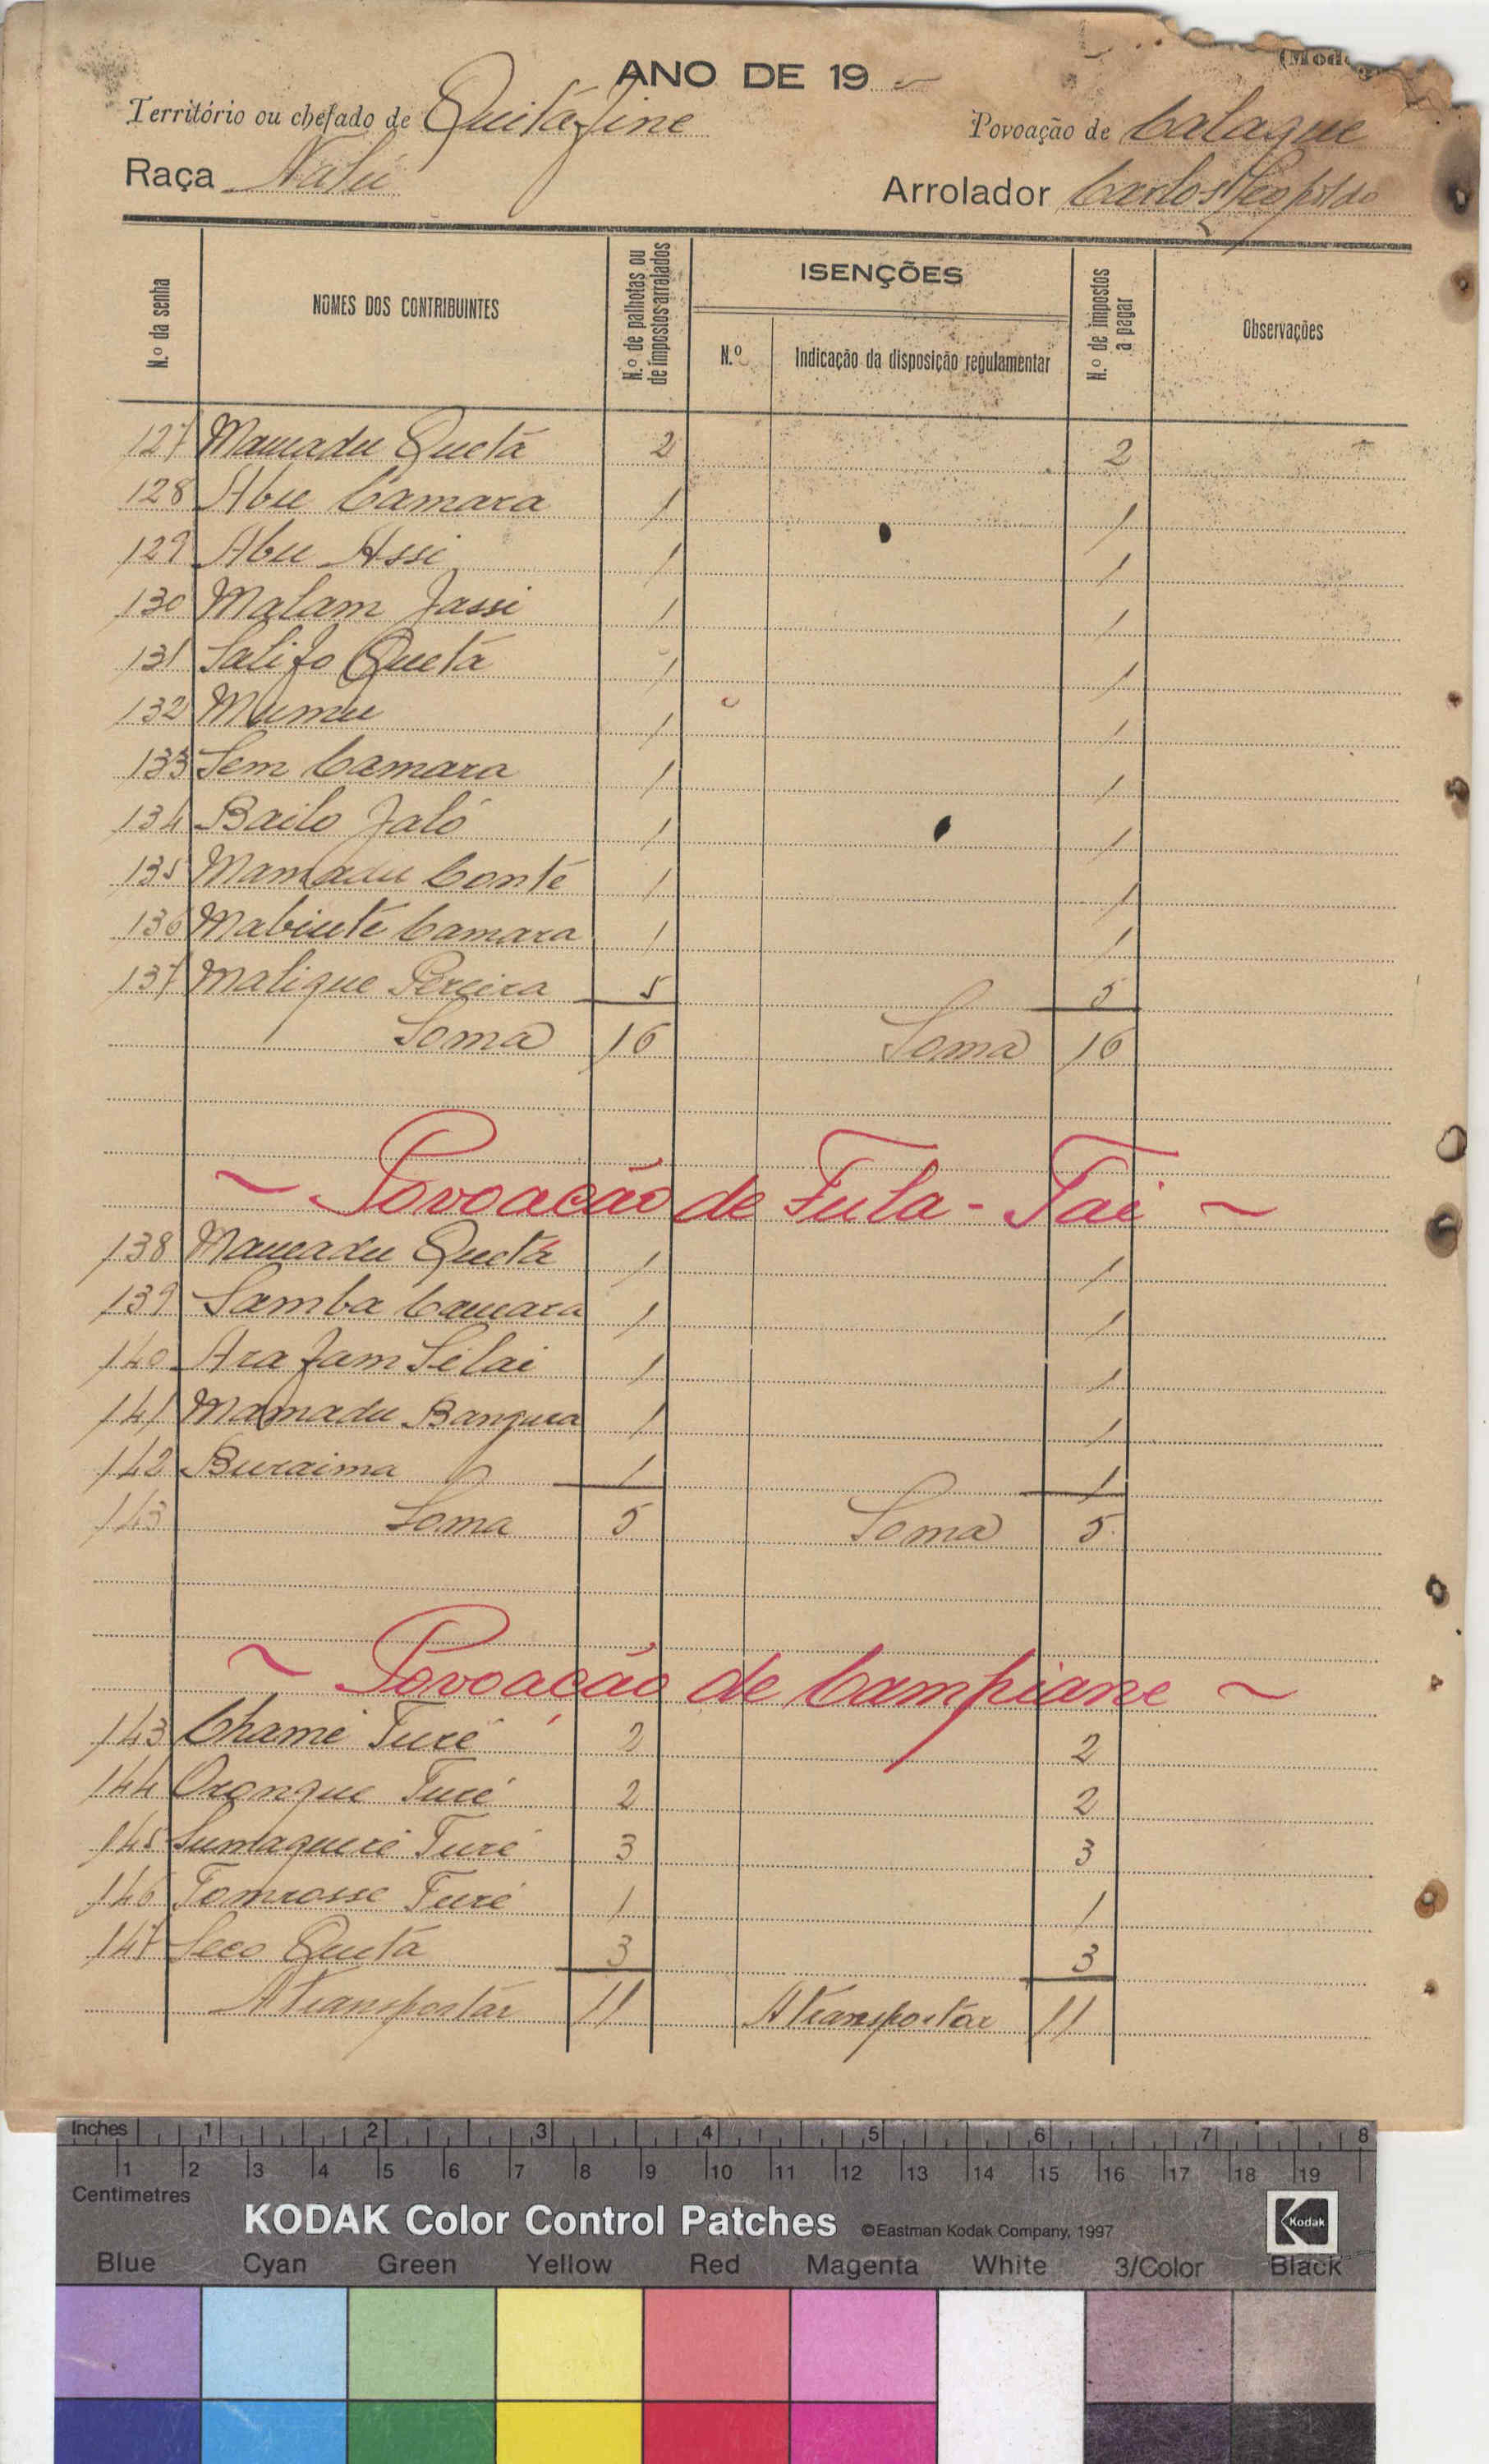 ANO DE 19
Território ou chefado de Quitafine
Povoação de Calaque
Raça Nalú
Arrolador Carlos Leopoldo
N.º da senha
NOMES DOS CONTRIBUINTES
N.º de palhotas ou de impostos arrolados
ISENÇÕES
N.º
Indicação da disposição regulamentar
N.º de impostos a pagar
Observações
127 Mamadu Quetá 2 2
128 Abu Camara 1 1
129 Abu Assi 1 1
130 Malam Jassi 1 1
131 Salifo Quetá 1 1
132 Mumu 1 1
133 Sem Camara 1 1
134 Bailo Jaló 1 1
135 Mamadu Conté 1 1
136 Mabinté Camara 1 1
137 Malique Pereira 5 5
Soma 16 Soma 16
~ Povoação de Fula - Tai ~
138 Mamadu Quetá 1 1
139 Samba Camara 1 1
140 Arafam Silai 1 1
141 Mamadu Bangura 1 1
142 Buraima 1 1
143 Soma 5 Soma 5
~ Povoação de Campiane ~
143 Chamé Turé 2 2
144 Oronque Turé 2 2
145 Sumaqueré Turé 3 3
146 Tomrosse Turé 1 1
147 Seco Quetá 3 3
A transportar 11 A transportar 11
Inches 1 2 3 4 5 6 7 8
1 2 3 4 5 6 7 8 9 10 11 12 13 14 15 16 17 18 19
Centimetres
KODAK Color Control Patches ©Eastman Kodak Company, 1997 Kodak
Blue Cyan Green Yellow Red Magenta White 3/Color Black